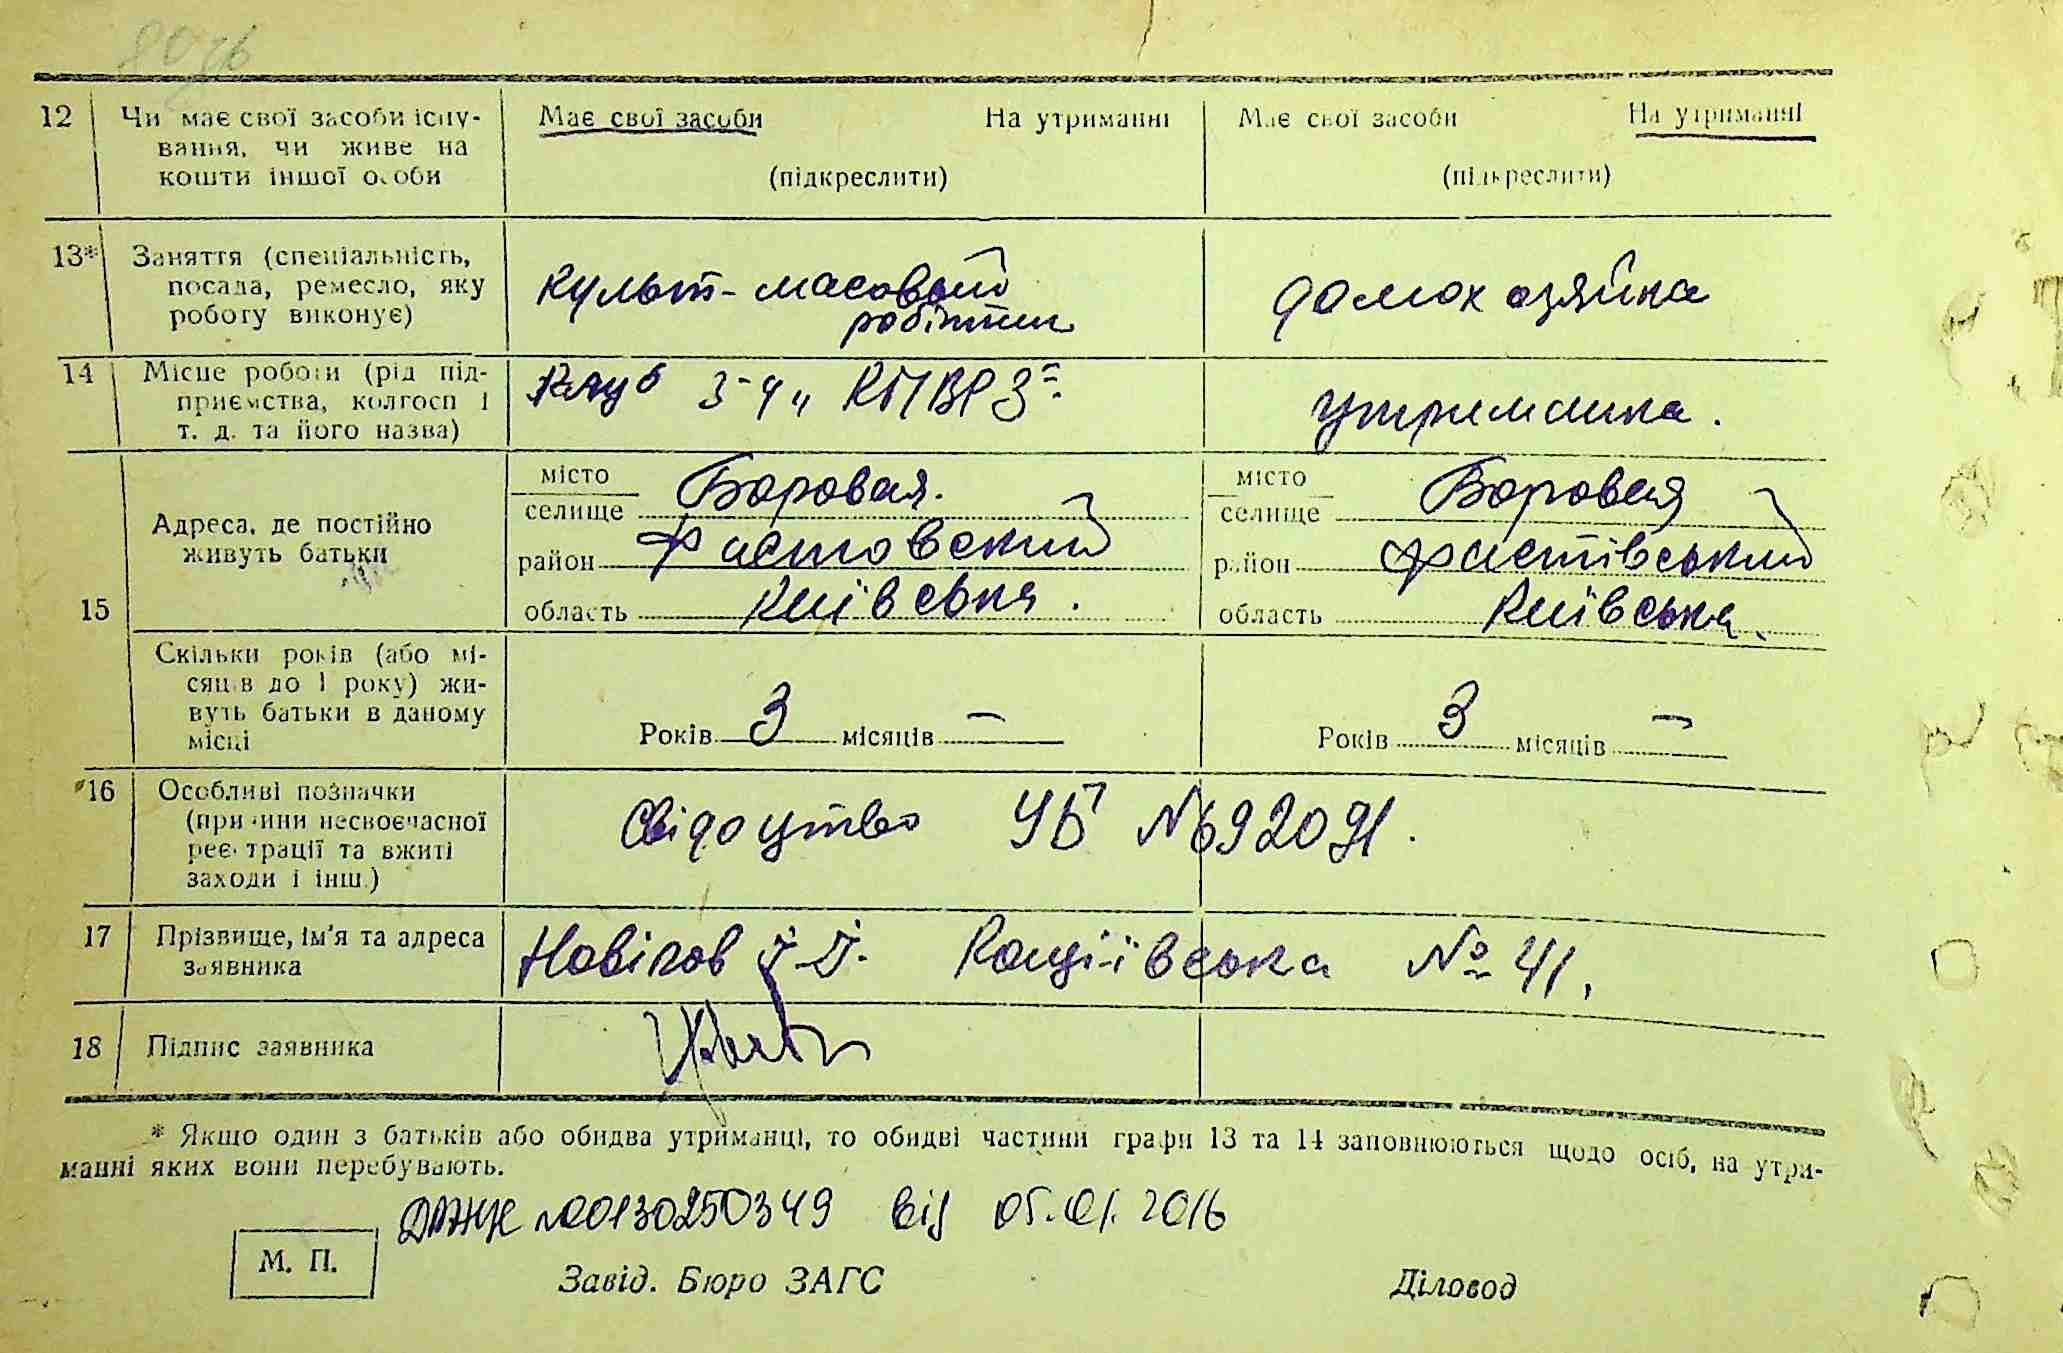 12 Чи має свої засоби існу- Має свої засоби На утриманні Має свої засоби На утриманні
вання, чи живе на
кошти іншої особи (підкреслити) (підкреслити)
13* Заняття (спеціальність,
посада, ремесло, яку культ-масовый домохозяйка
роботу виконує) робітник
14 Місце роботи (рід під- Клуб З-ч КПВРЗ
приємства, колгосп і утриманка.
т. д. та його назва)
місто Боровая. місто Боровая
селище селище
Адреса, де постійно
живуть батьки район Фастовский район Фастівський
15 область Київська. область Київська.
Скільки років (або мі-
сяців до 1 року) жи-
вуть батьки в даному
місці Років 3 місяців — Років 3 місяців —
16 Особливі позначки
(причини несвоєчасної Свідоцтво УБ №692091.
реєстрації та вжиті
заходи і інш.)
17 Прізвище, ім'я та адреса Новіков І. Д. № 41.
заявника
18 Підпис заявника
* Якщо один з батьків або обидва утриманці, то обидві частини графи 13 та 14 заповнюються щодо осіб, на утри-
манні яких вони перебувають.
№00130250349 від 05.01.2016
М. П.
Завід. Бюро ЗАГС Діловод